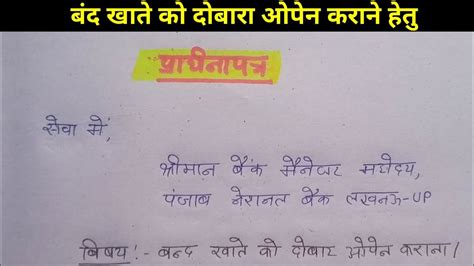 बंद खाते को दोबारा ओपेन कराने हेतु
प्रार्थनापत्र
सेवा में,
श्रीमान बैंक मैनेजर महोदय,
पंजाब नेशनल बैंक लखनऊ-UP
विषय:- बन्द खाते को दोबारा ओपेन कराना।